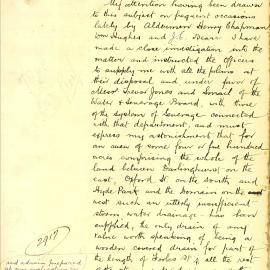 My attention having been drawn
to this subject on frequent occasions
lately by Aldermen Henry Chapman
Wm Hughes and J.C. Beare I have
made a close investigation into the
matter and instructed the officers
to supply me with all the plans at
their disposal and under favor of
Messrs Trevor Jones and Smail of the
Water & Sewerage Board, with those
of the system of Sewerage connected
with that department, and must
express my astonishment that for
an area of some four or five hundred
acres comprising the whole of the
land between Darlinghurst on the
east, Oxford St on the south, and
Hyde Park and the Domain on the
west such an utterly insufficient
storm water drainage has been
supplied, the only drain of any
value worth speaking of being a
wooden covered drain for part of
the length of Forbes St if all the rest
2917
and